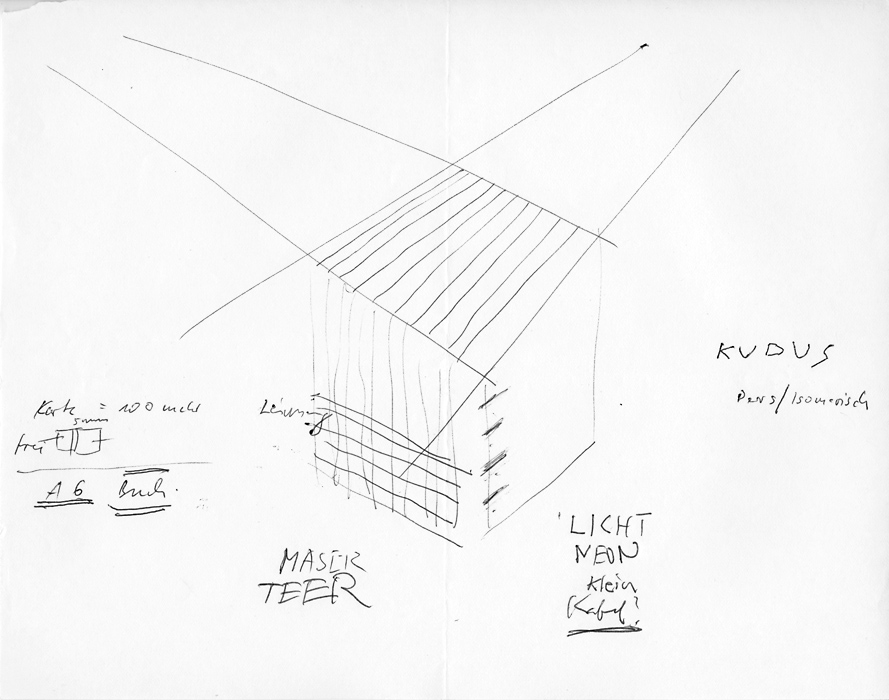 KUDUS
Pers/Isometrisch
Karte = 100 mehr
5mm
frei
A6 Buch.
MASER
TEER
LICHT
NEON
Klein
Kabel?